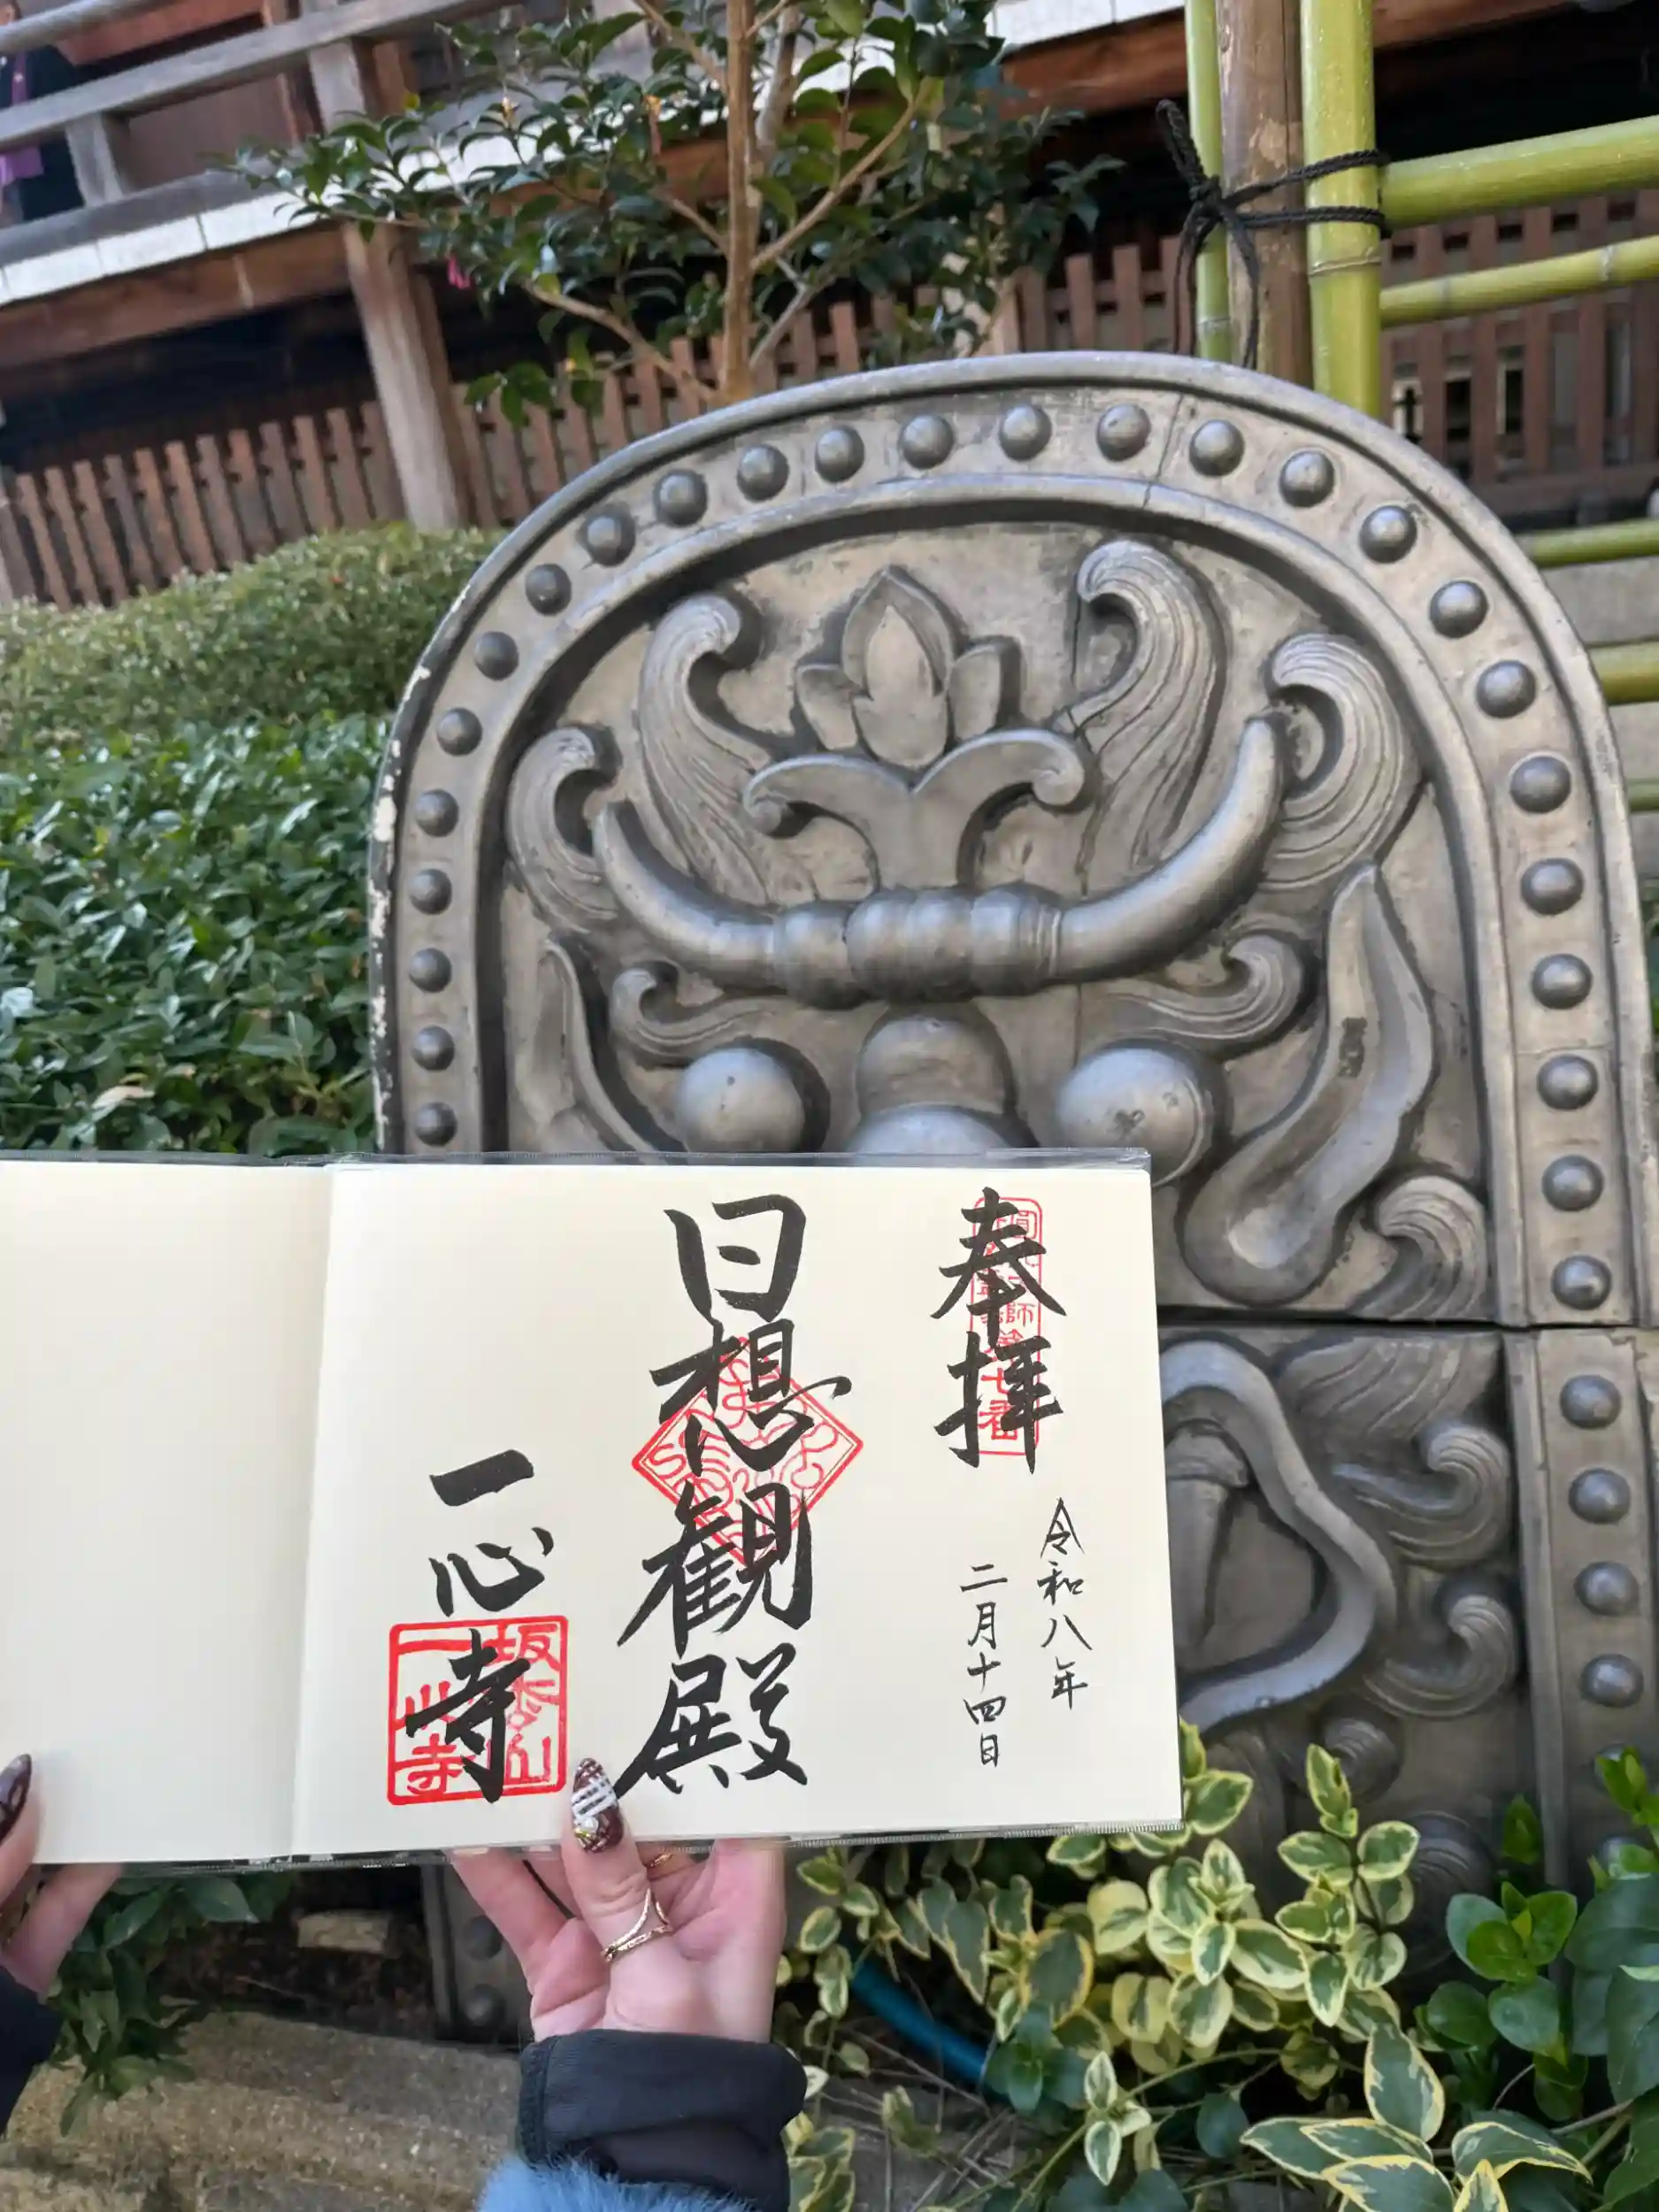 奉拝
令和八年
二月十四日
日想観殿
一心寺
坂松山
一心寺